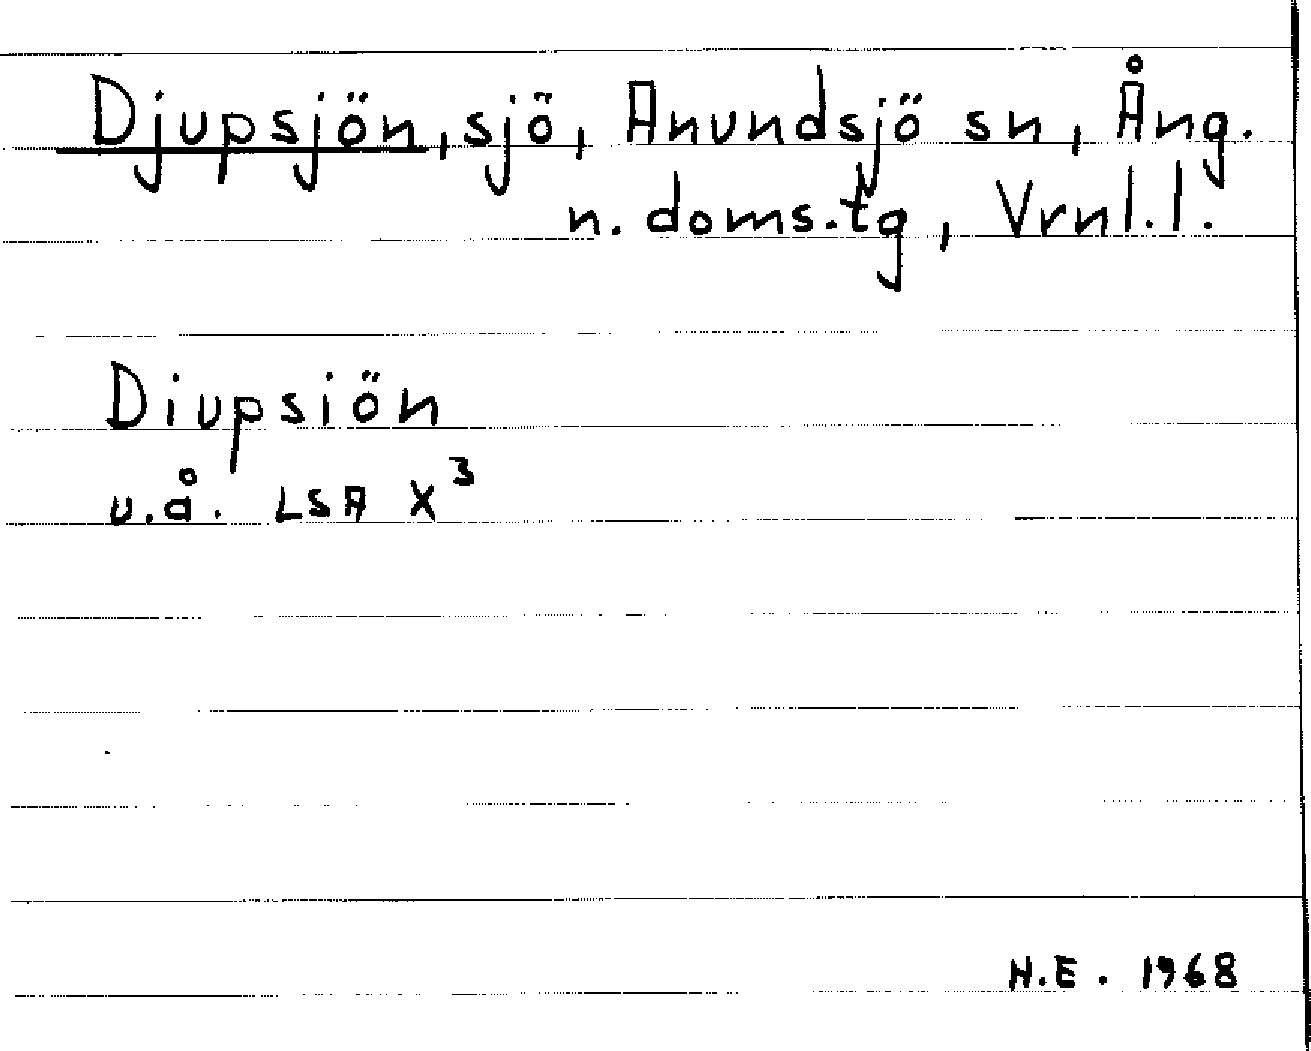 Djupsjön, sjö, Anundsjö sn, Ång.
n. doms.tg, Vrnl.l.
Diupsiön
u.å. LSA X³
H.E. 1968